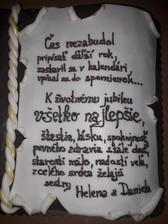 Čas nezabudol
pripísať ďalší rok,
zastavil sa v kalendári
vpísal sa do spomienok...
K životnému jubileu
všetko najlepšie,
šťastie, lásku, spokojnosť
pevného zdravia stále dosť
starostí málo, radostí veľa,
z celého srdca želajú
sestry
Helena a Daniela